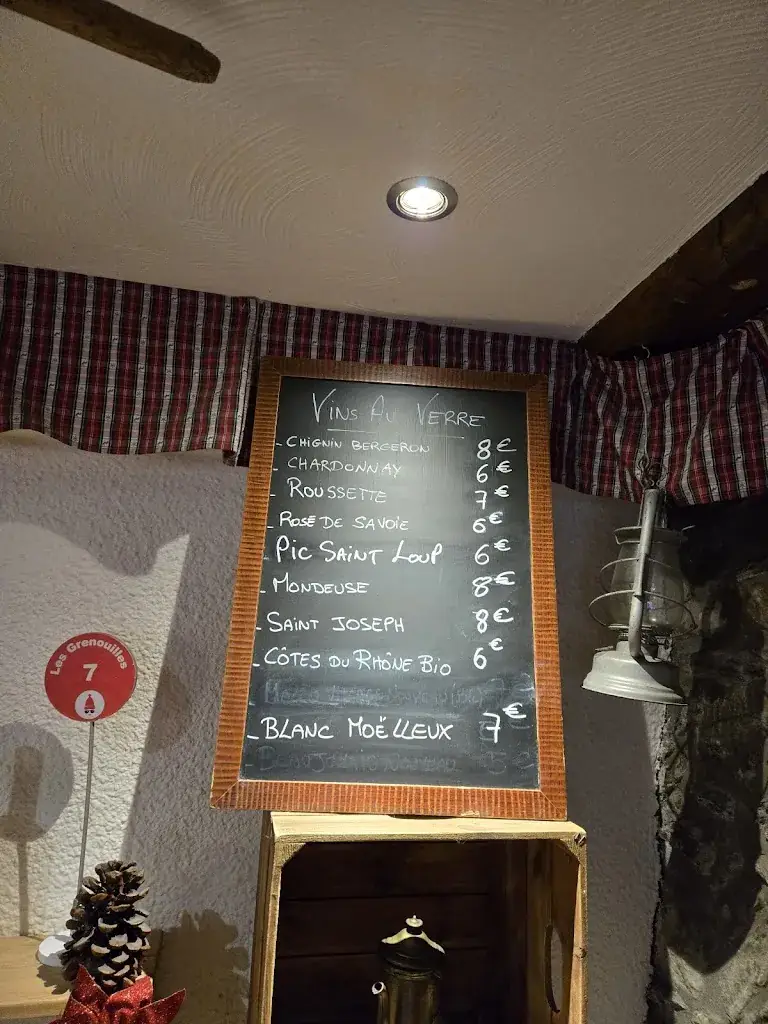 Vins Au Verre
- Chignin Bergeron 8€
- Chardonnay 6€
- Roussette 7€
- Rosé de Savoie 6€
- Pic Saint Loup 6€
- Mondeuse 8€
- Saint Joseph 8€
- Côtes du Rhône Bio 6€
- Blanc Moëlleux 7€
Les Grenouilles
7